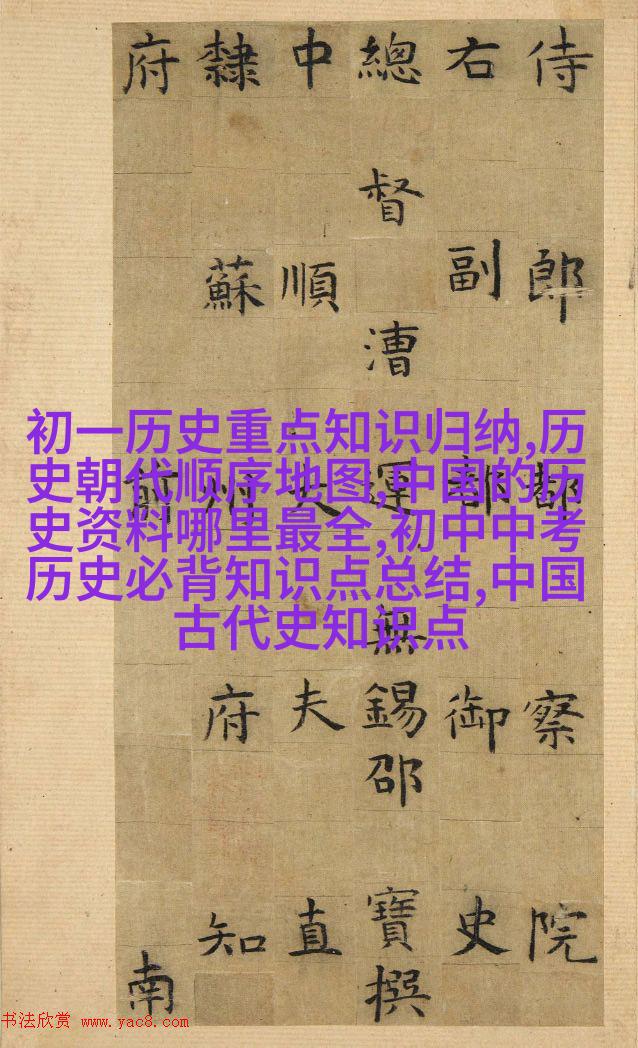 初一历史重点知识归纳,历
史朝代顺序地图,中国的历
史资料哪里最全,初中中考
历史必背知识点总结,中国
古代史知识点
侍郎都察院
右副都御史
總督漕運無錫邵寶撰
中順大夫直
隸蘇州府知
府前南
书法欣赏 www.yac8.com